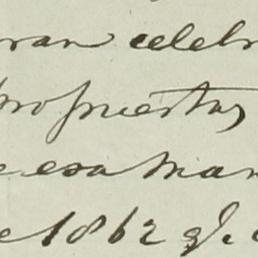 ran celebr
propuestas
e esa man
e 1862 q.e